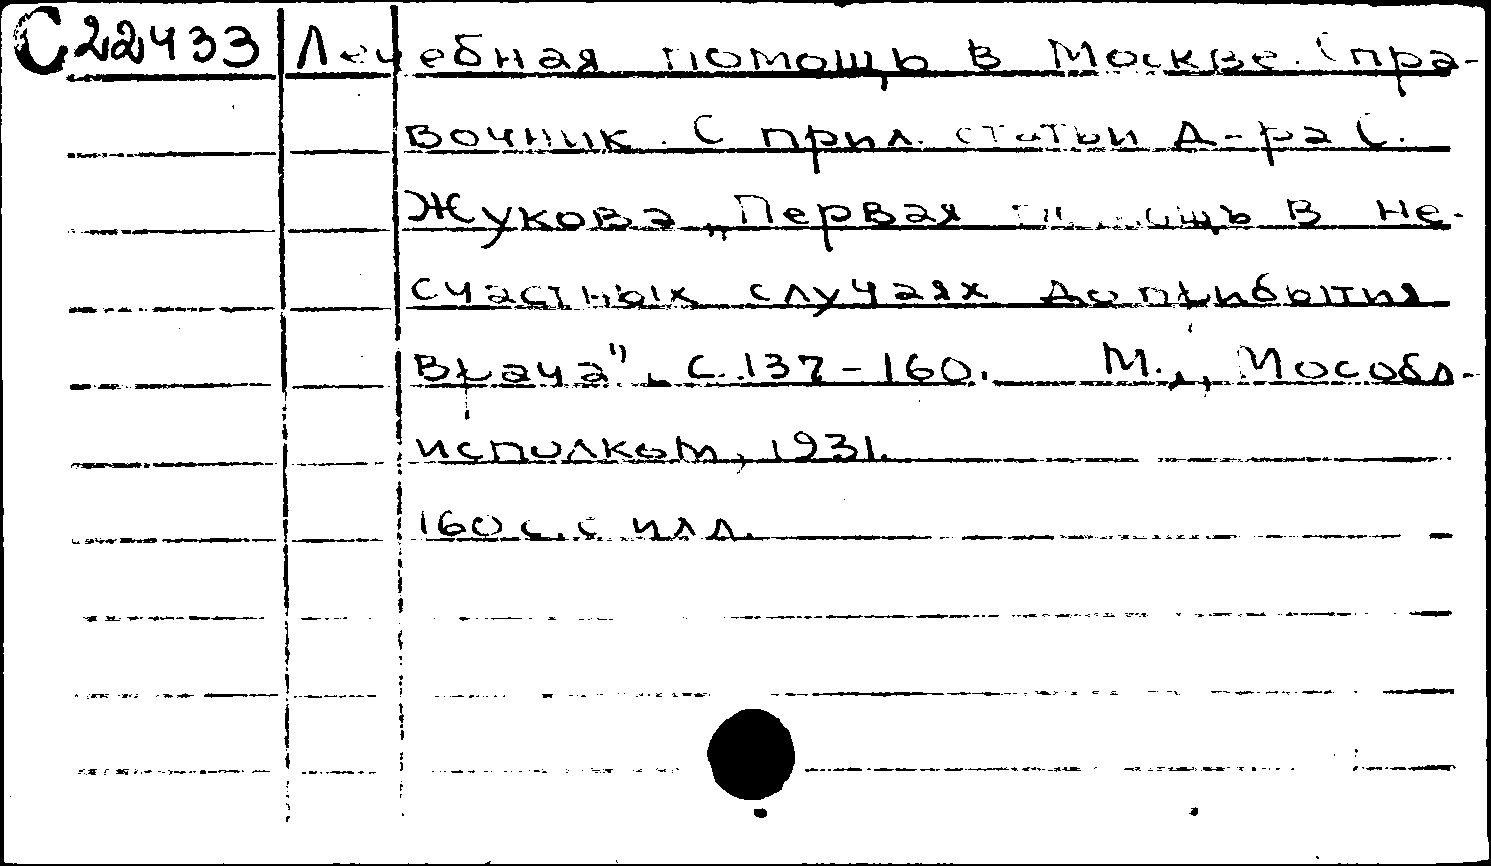 С22433 Лечебная помощь в Москве. Спра-
вочник. С прил. статьи д-ра С.
Жукова „Первая помощь в не-
счастных случаях до прибытия
врача", с. 137-160. М., Мособл-
исполком, 1931.
160 с. с илл.